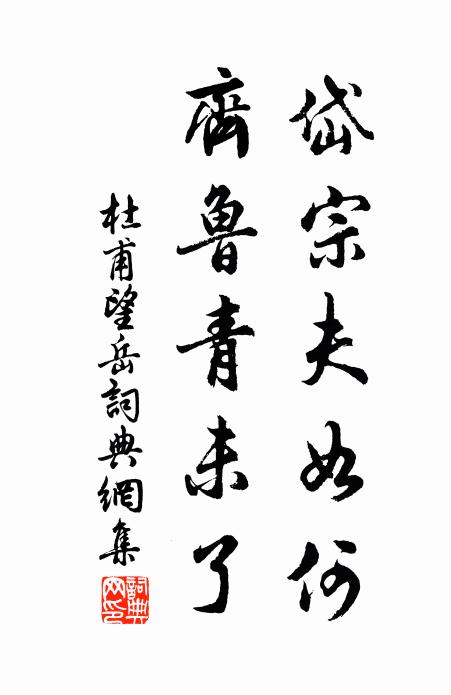 岱宗夫如何
齊魯青未了
杜甫望岳詞典網集